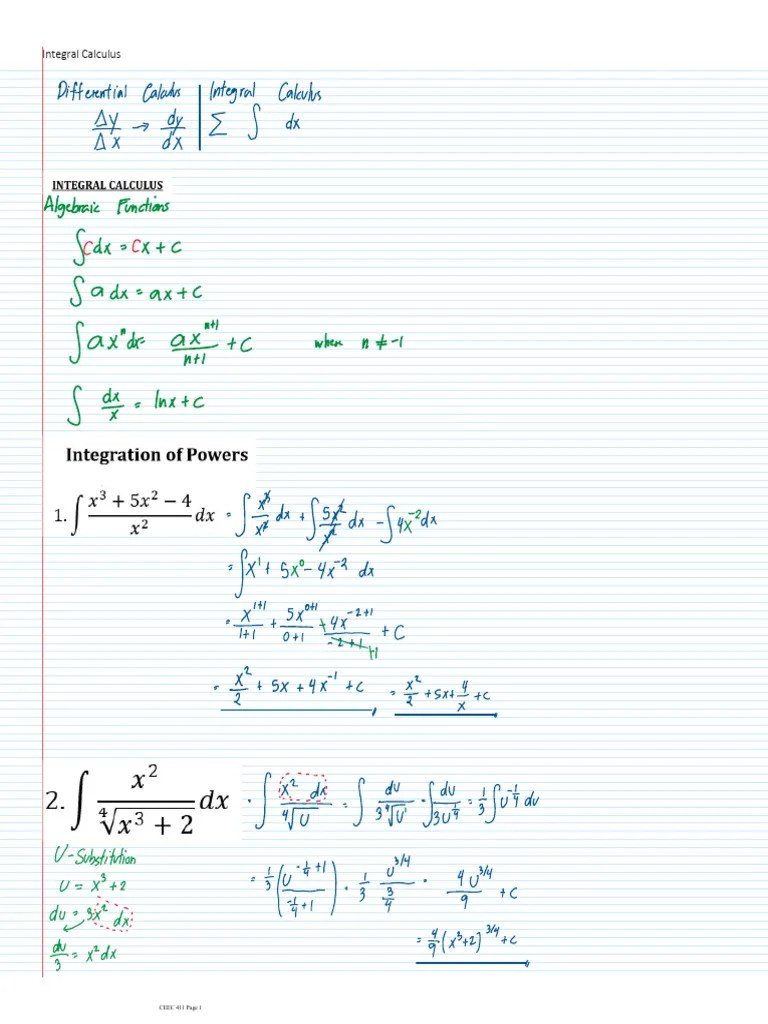 Integral Calculus
Differential Calculus | Integral Calculus
Δy/Δx → dy/dx | Σ ∫ dx
INTEGRAL CALCULUS
Algebraic Functions
∫Cdx = Cx + C
∫a dx = ax + C
∫ax^n dx = ax^(n+1)/(n+1) + C when n ≠ -1
∫ dx/x = lnx + C
Integration of Powers
1. ∫ (x³ + 5x² − 4)/x² dx = ∫ x³/x² dx + ∫ 5x²/x² dx − ∫4x⁻² dx
= ∫x¹ + 5x⁰ − 4x⁻² dx
= x^(1+1)/(1+1) + 5x^(0+1)/(0+1) + 4x^(−2+1)/(−2+1) +1 + C
= x²/2 + 5x + 4x⁻¹ + C, = x²/2 + 5x + 4/x + C
2. ∫ x²/∜(x³ + 2) dx = ∫ x² dx/∜U = ∫ du/(3∜U) = ∫ du/(3U^(1/4)) = 1/3 ∫U^(−1/4) du
U-Substitution
U = x³+2
du = 3x² dx
du/3 = x² dx
= 1/3 (U^(−1/4+1)/(−1/4+1)) = 1/3 U^(3/4)/(3/4) = 4U^(3/4)/9 + C
= 4/9 (x³+2)^(3/4) + C
CEEC 411 Page 1